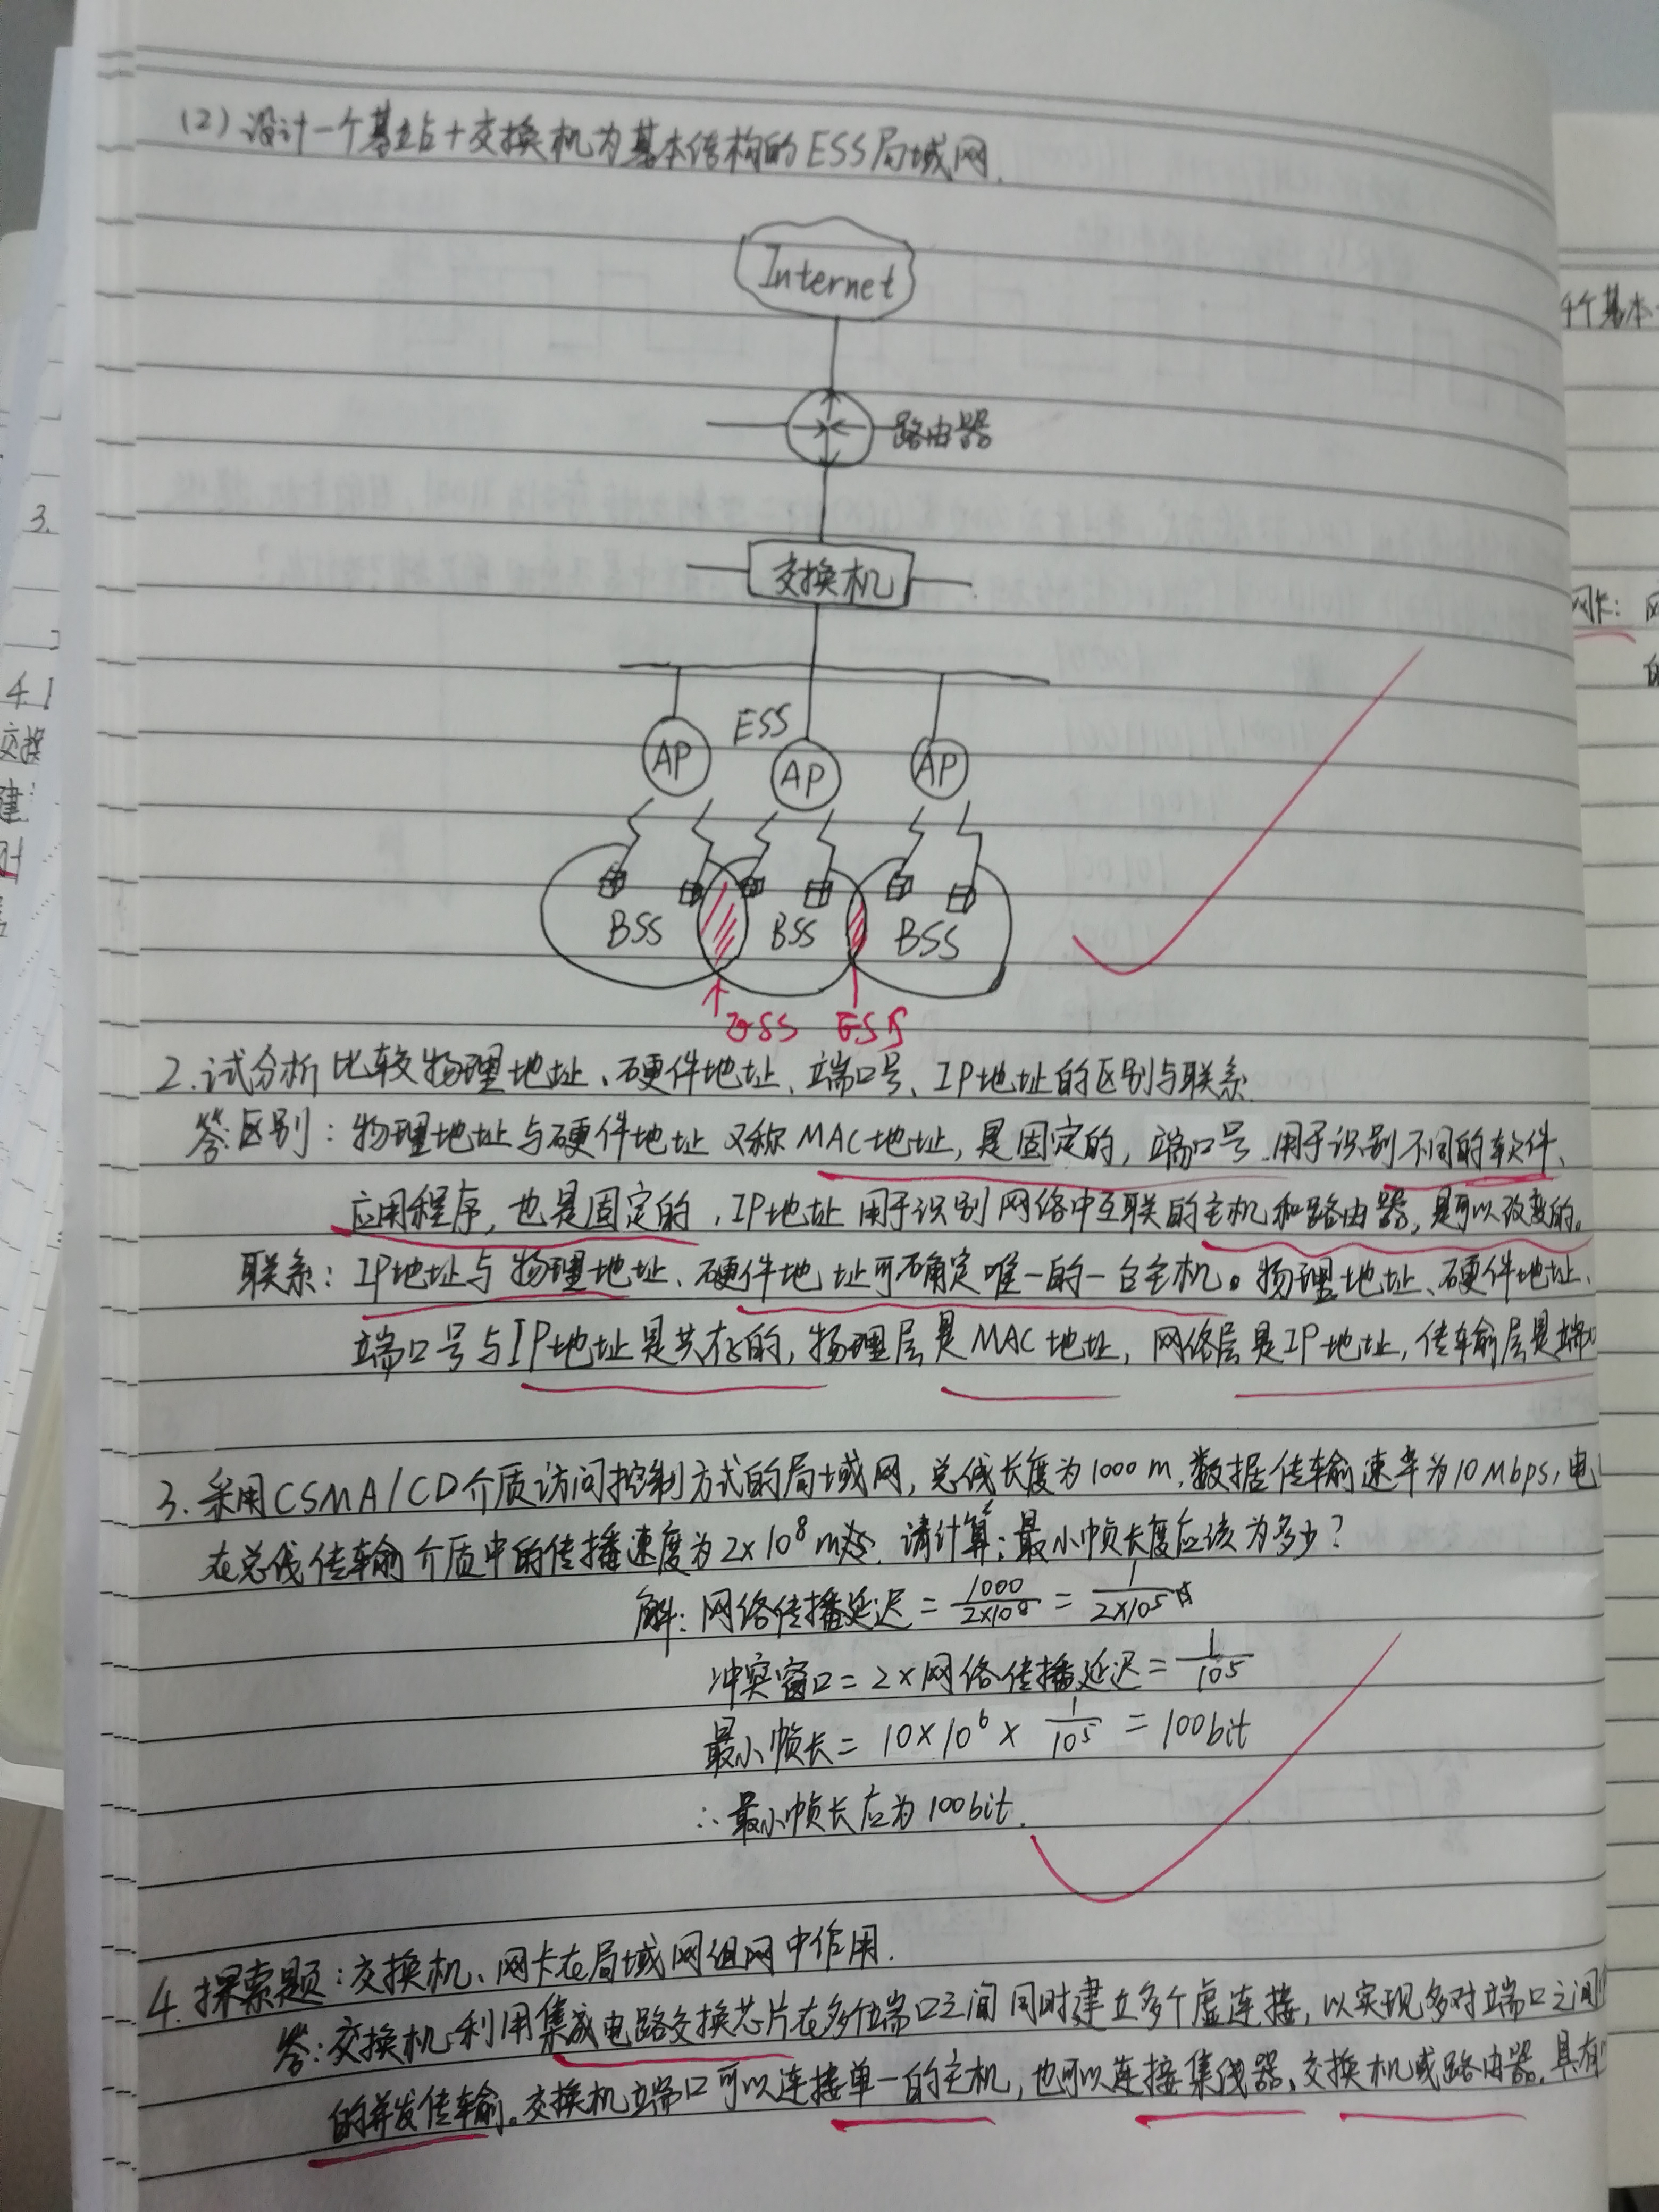 (2)设计一个基站+交换机为基本结构的ESS局域网.
Internet
路由器
交换机
ESS
AP
AP
AP
BSS
BSS
BSS
ESS
ESS
2.试分析比较物理地址、硬件地址、端口号、IP地址的区别与联系.
答:区别:物理地址与硬件地址又称MAC地址,是固定的,端口号用于识别不同的软件、
应用程序,也是固定的,IP地址用于识别网络中互联的主机和路由器,是可以改变的。
联系:IP地址与物理地址、硬件地址可否确定唯一的一台主机。物理地址、硬件地址、
端口号与IP地址是共存的,物理层是MAC地址,网络层是IP地址,传输层是端口
3.采用CSMA/CD介质访问控制方式的局域网,总线长度为1000m,数据传输速率为10Mbps,电
在总线传输介质中的传播速度为2×10⁸m/s.请计算:最小帧长度应该为多少?
解:网络传播延迟=1000/2×10⁸=1/2×10⁵
冲突窗口=2×网络传播延迟=1/10⁵
最小帧长=10×10⁶×1/10⁵=100bit
∴最小帧长应为100bit.
4.探索题:交换机、网卡在局域网组网中作用.
答:交换机利用集成电路交换芯片在多个端口之间同时建立多个虚连接,以实现多对端口之间
的并发传输。交换机端口可以连接单一的主机,也可以连接集线器、交换机或路由器.具有
3.
4.1
交换
建
个基本
网卡:网